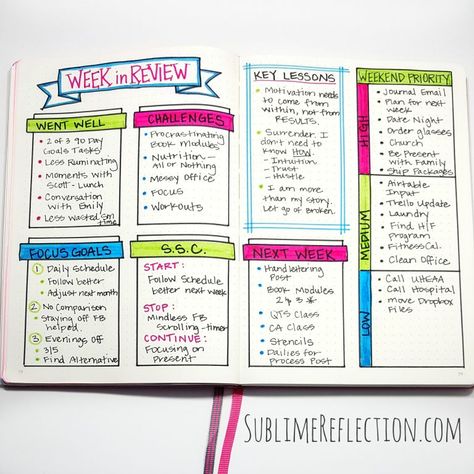 WEEK in REVIEW
WENT WELL
2 of 3 90 Day
Goals Tasks
Less Ruminating
Moments with
Scott - Lunch
Conversation
with Emily
Less wasted Sm
time
CHALLENGES
Procrastinating
Book Modules
Nutrition -
All or Nothing
Messy Office
FOCUS
Workouts
FOCUS GOALS
1 Daily Schedule
Follow better
Adjust next month
2 No Comparison
Staying off FB
helped.
3 Evenings Off
3/5
Find Alternative
S.S.C.
START:
Follow Schedule
better next week
STOP:
Mindless FB
Scrolling - timer
CONTINUE:
Focusing on
Present
KEY LESSONS
Motivation needs
to come from
within, not from
RESULTS.
Surrender. I
don't need to
know HOW.
- Intuition
- Trust
- Hustle
I am more
than my story.
Let go of broken.
NEXT WEEK
Hand lettering
Post
Book Modules
2 & 3 *
QTS Class
CA Class
Stencils
Dailies for
Process Post
WEEKEND PRIORITY
HIGH
Journal Email
Plan for next
week
Date Night
Order glasses
Church
Be Present
with Family
Ship Packages
MEDIUM
Airtable
Input
Trello Update
Laundry
Find H/F
program
FitnessCal.
Clean Office
LOW
Call UHEAA
Call Hospital
move Dropbox
Files
SUBLIMEREFLECTION.COM